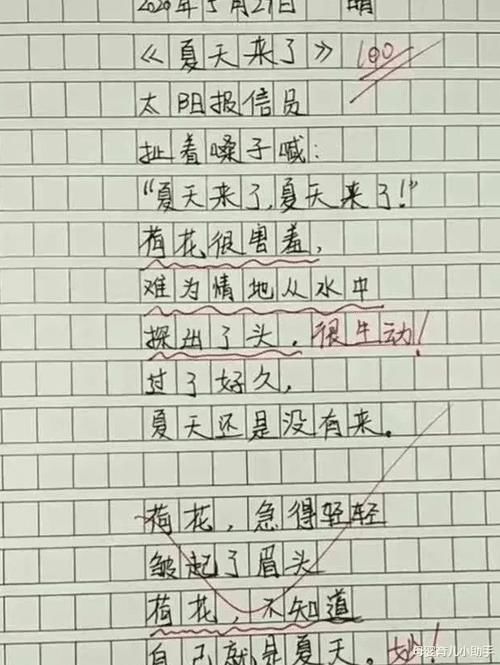 2020年5月29日 晴
《夏天来了》 100
太阳报信员
扯着嗓子喊:
“夏天来了,夏天来了!”
荷花很害羞,
难为情地从水中
探出了头。很生动!
过了好久,
夏天还是没有来。
荷花,急得轻轻
皱起了眉头
荷花,不知道
自己就是夏天。妙!
母婴育儿小助手